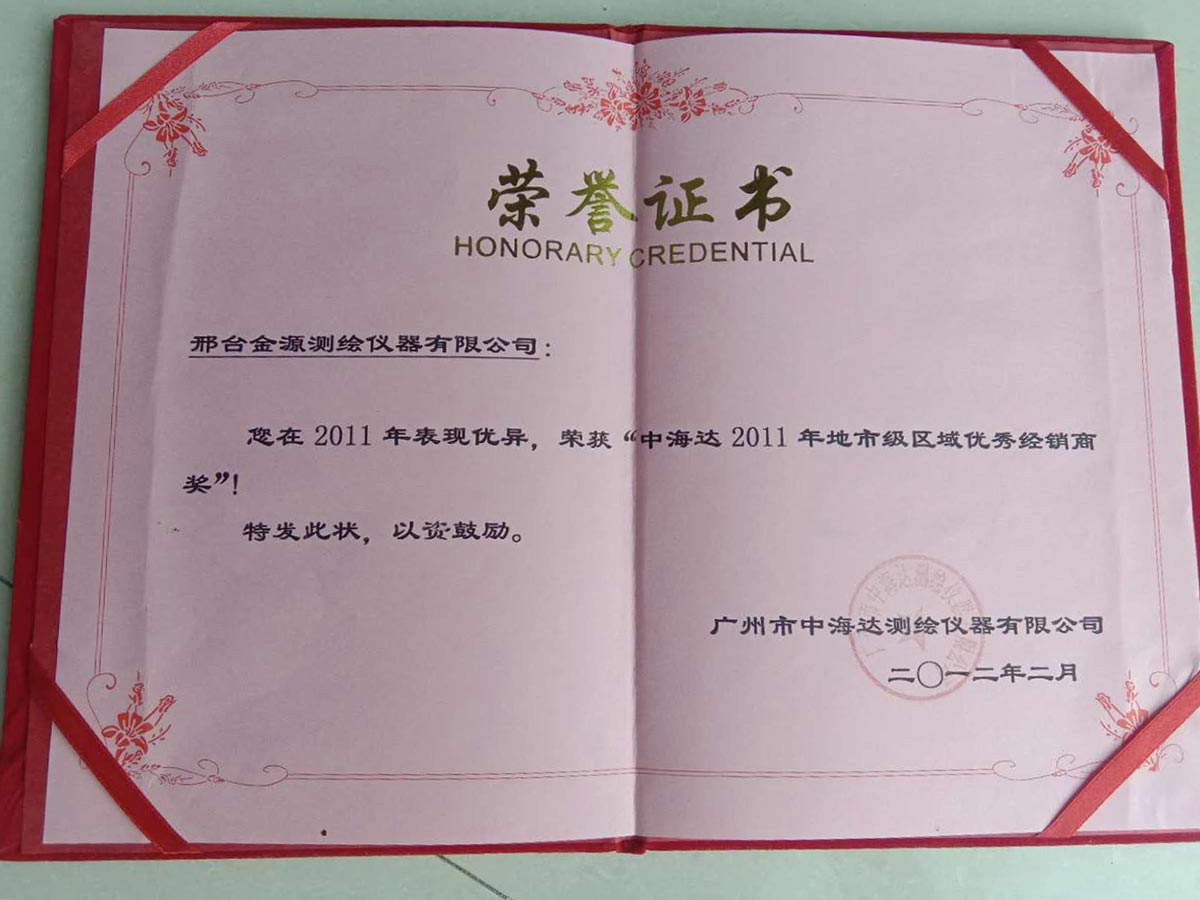 荣誉证书
HONORARY CREDENTIAL
邢台金源测绘仪器有限公司：
您在 2011 年表现优异，荣获“中海达 2011 年地市级区域优秀经销商
奖”！
特发此状，以资鼓励。
广州市中海达测绘仪器有限公司
二〇一二年二月